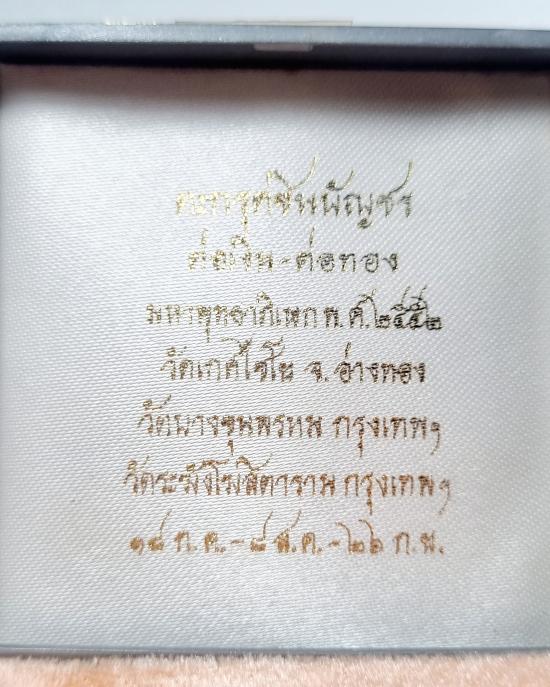 ตะกรุดชินบัญชร
ต่อเงิน-ต่อทอง
มหาพุทธาภิเษก พ.ศ.๒๕๕๒
วัดเกศไชโย จ.อ่างทอง
วัดบางขุนพรหม กรุงเทพฯ
วัดระฆังโฆสิตาราม กรุงเทพฯ
๑๘ ก.ค.-๘ ส.ค.-๒๖ ก.พ.